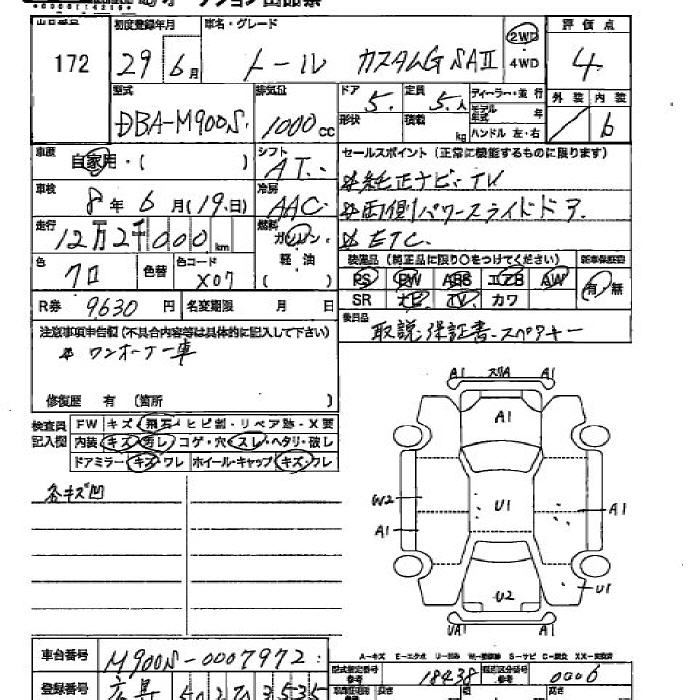 出品番号 初度登録年月 車名・グレード 2WD 評価点
172 29年6月 トール カスタムG SAⅡ 4WD 4
型式 排気量 ドア 定員 ディーラー・並行 外装 内装
DBA-M900S 1000cc 5 5人 モデル年式 年 6
形状 積載 kg ハンドル 左・右
車歴 自家用・( ) シフト AT セールスポイント(正常に機能するものに限ります)
車検 8年6月(19日) 冷房 AAC ※純正ナビ・TV
走行 12万2千000km 燃料 ガソリン・軽油 ( ) ※両側パワースライドドア
※ETC
色 クロ 色替 色コード X07 装備品(純正品に限り○をつけてください) 新車保証書
PS PW ABS エアB AW 有・無
R券 9630円 名変期限 月 日 SR ナビ TV カワ
注意事項申告欄(不具合内容等は具体的に記入して下さい) 後日品 取説・保証書・スペアキー
※ワンオーナー車
修復歴 有(箇所 )
検査員記入欄 FW キズ・飛石・ヒビ割・リペア跡・X要
内装 キズ・汚レ・コゲ・穴・スレ・ヘタリ・破レ
ドアミラー キズ・ワレ ホイール・キャップ キズ・ワレ
各キズ凹
A1 スリA A1
A1
W2 U1 A1
A1
U2 U1
UA1 A1
A-キズ E-エクボ U-凹み W-補修跡 S-サビ C-腐食 XX-交換済
車台番号 M900S-0007972 型式指定番号 参考 18438 類別区分番号 参考 0006
登録番号